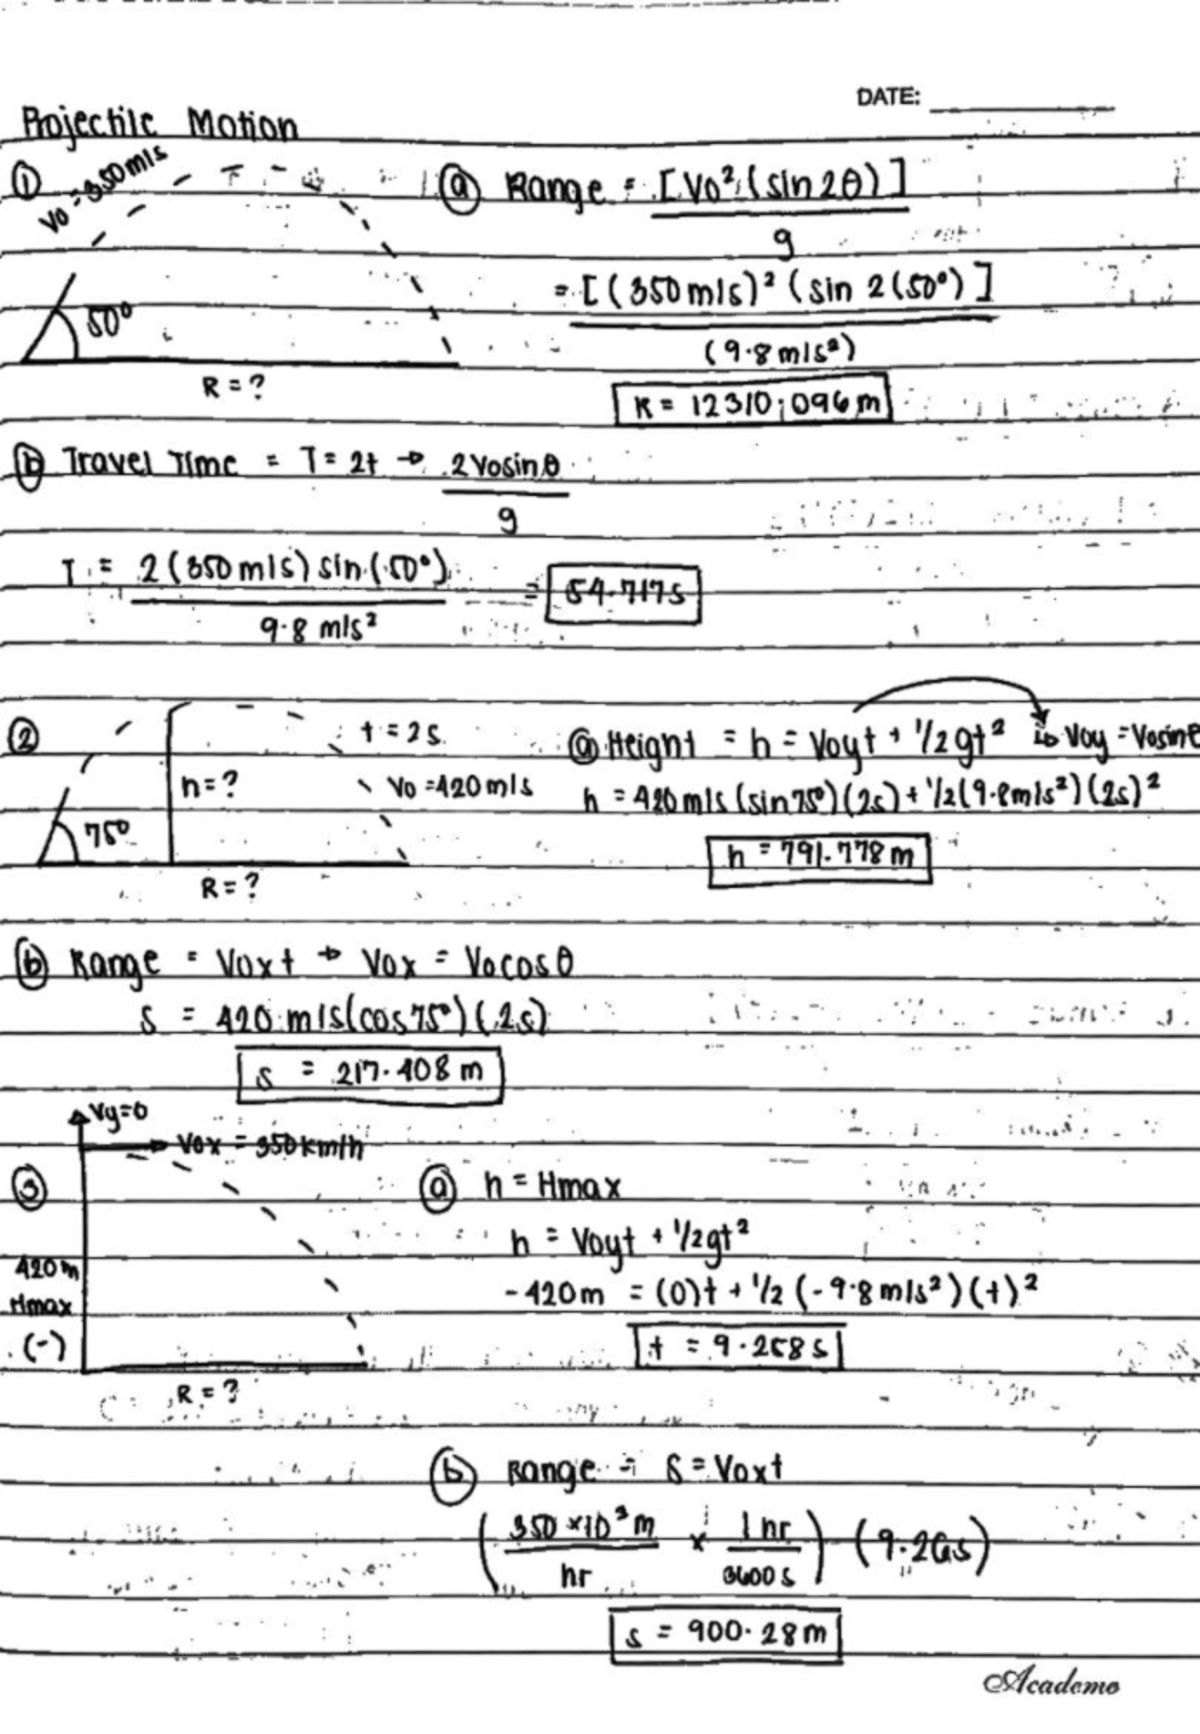 DATE:
Projectile Motion
① Vo = 350 m/s
50°
R = ?
ⓐ Range = [Vo² (sin 2θ)]
g
= [(350 m/s)² (sin 2(50°)]
(9.8 m/s²)
R = 12310.096 m
ⓑ Travel Time = T = 2t → 2Vosinθ
g
T = 2(350 m/s) sin(50°) = 54.717s
9.8 m/s²
② h = ? t = 2s
Vo = 420 m/s
75°
R = ?
ⓐ Height = h = Voyt + 1/2gt² Voy = Vosinθ
h = 420 m/s (sin75°)(2s) + 1/2(9.8m/s²)(2s)²
h = 791.778 m
ⓑ Range = Voxt → Vox = Vocosθ
s = 420 m/s(cos75°)(2s)
s = 217.408 m
Vy=0
Vox = 350 km/h
③
420m
Hmax
(-)
R = ?
ⓐ h = Hmax
h = Voyt + 1/2gt²
-420m = (0)t + 1/2 (-9.8 m/s²)(t)²
t = 9.258 s
ⓑ Range = s = Voxt
(350 x10³ m x 1 hr) (9.26s)
hr 3600 s
s = 900.28 m
Academo